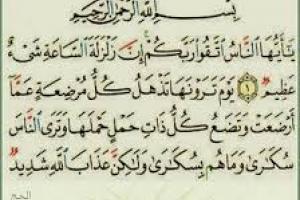 بِسْمِ اللَّهِ الرَّحْمَٰنِ الرَّحِيمِ
يَا أَيُّهَا النَّاسُ اتَّقُوا رَبَّكُمْ إِنَّ زَلْزَلَةَ السَّاعَةِ شَيْءٌ
عَظِيمٌ ١ يَوْمَ تَرَوْنَهَا تَذْهَلُ كُلُّ مُرْضِعَةٍ عَمَّا
أَرْضَعَتْ وَتَضَعُ كُلُّ ذَاتِ حَمْلٍ حَمْلَهَا وَتَرَى النَّاسَ
سُكَارَىٰ وَمَا هُم بِسُكَارَىٰ وَلَٰكِنَّ عَذَابَ اللَّهِ شَدِيدٌ
الحج